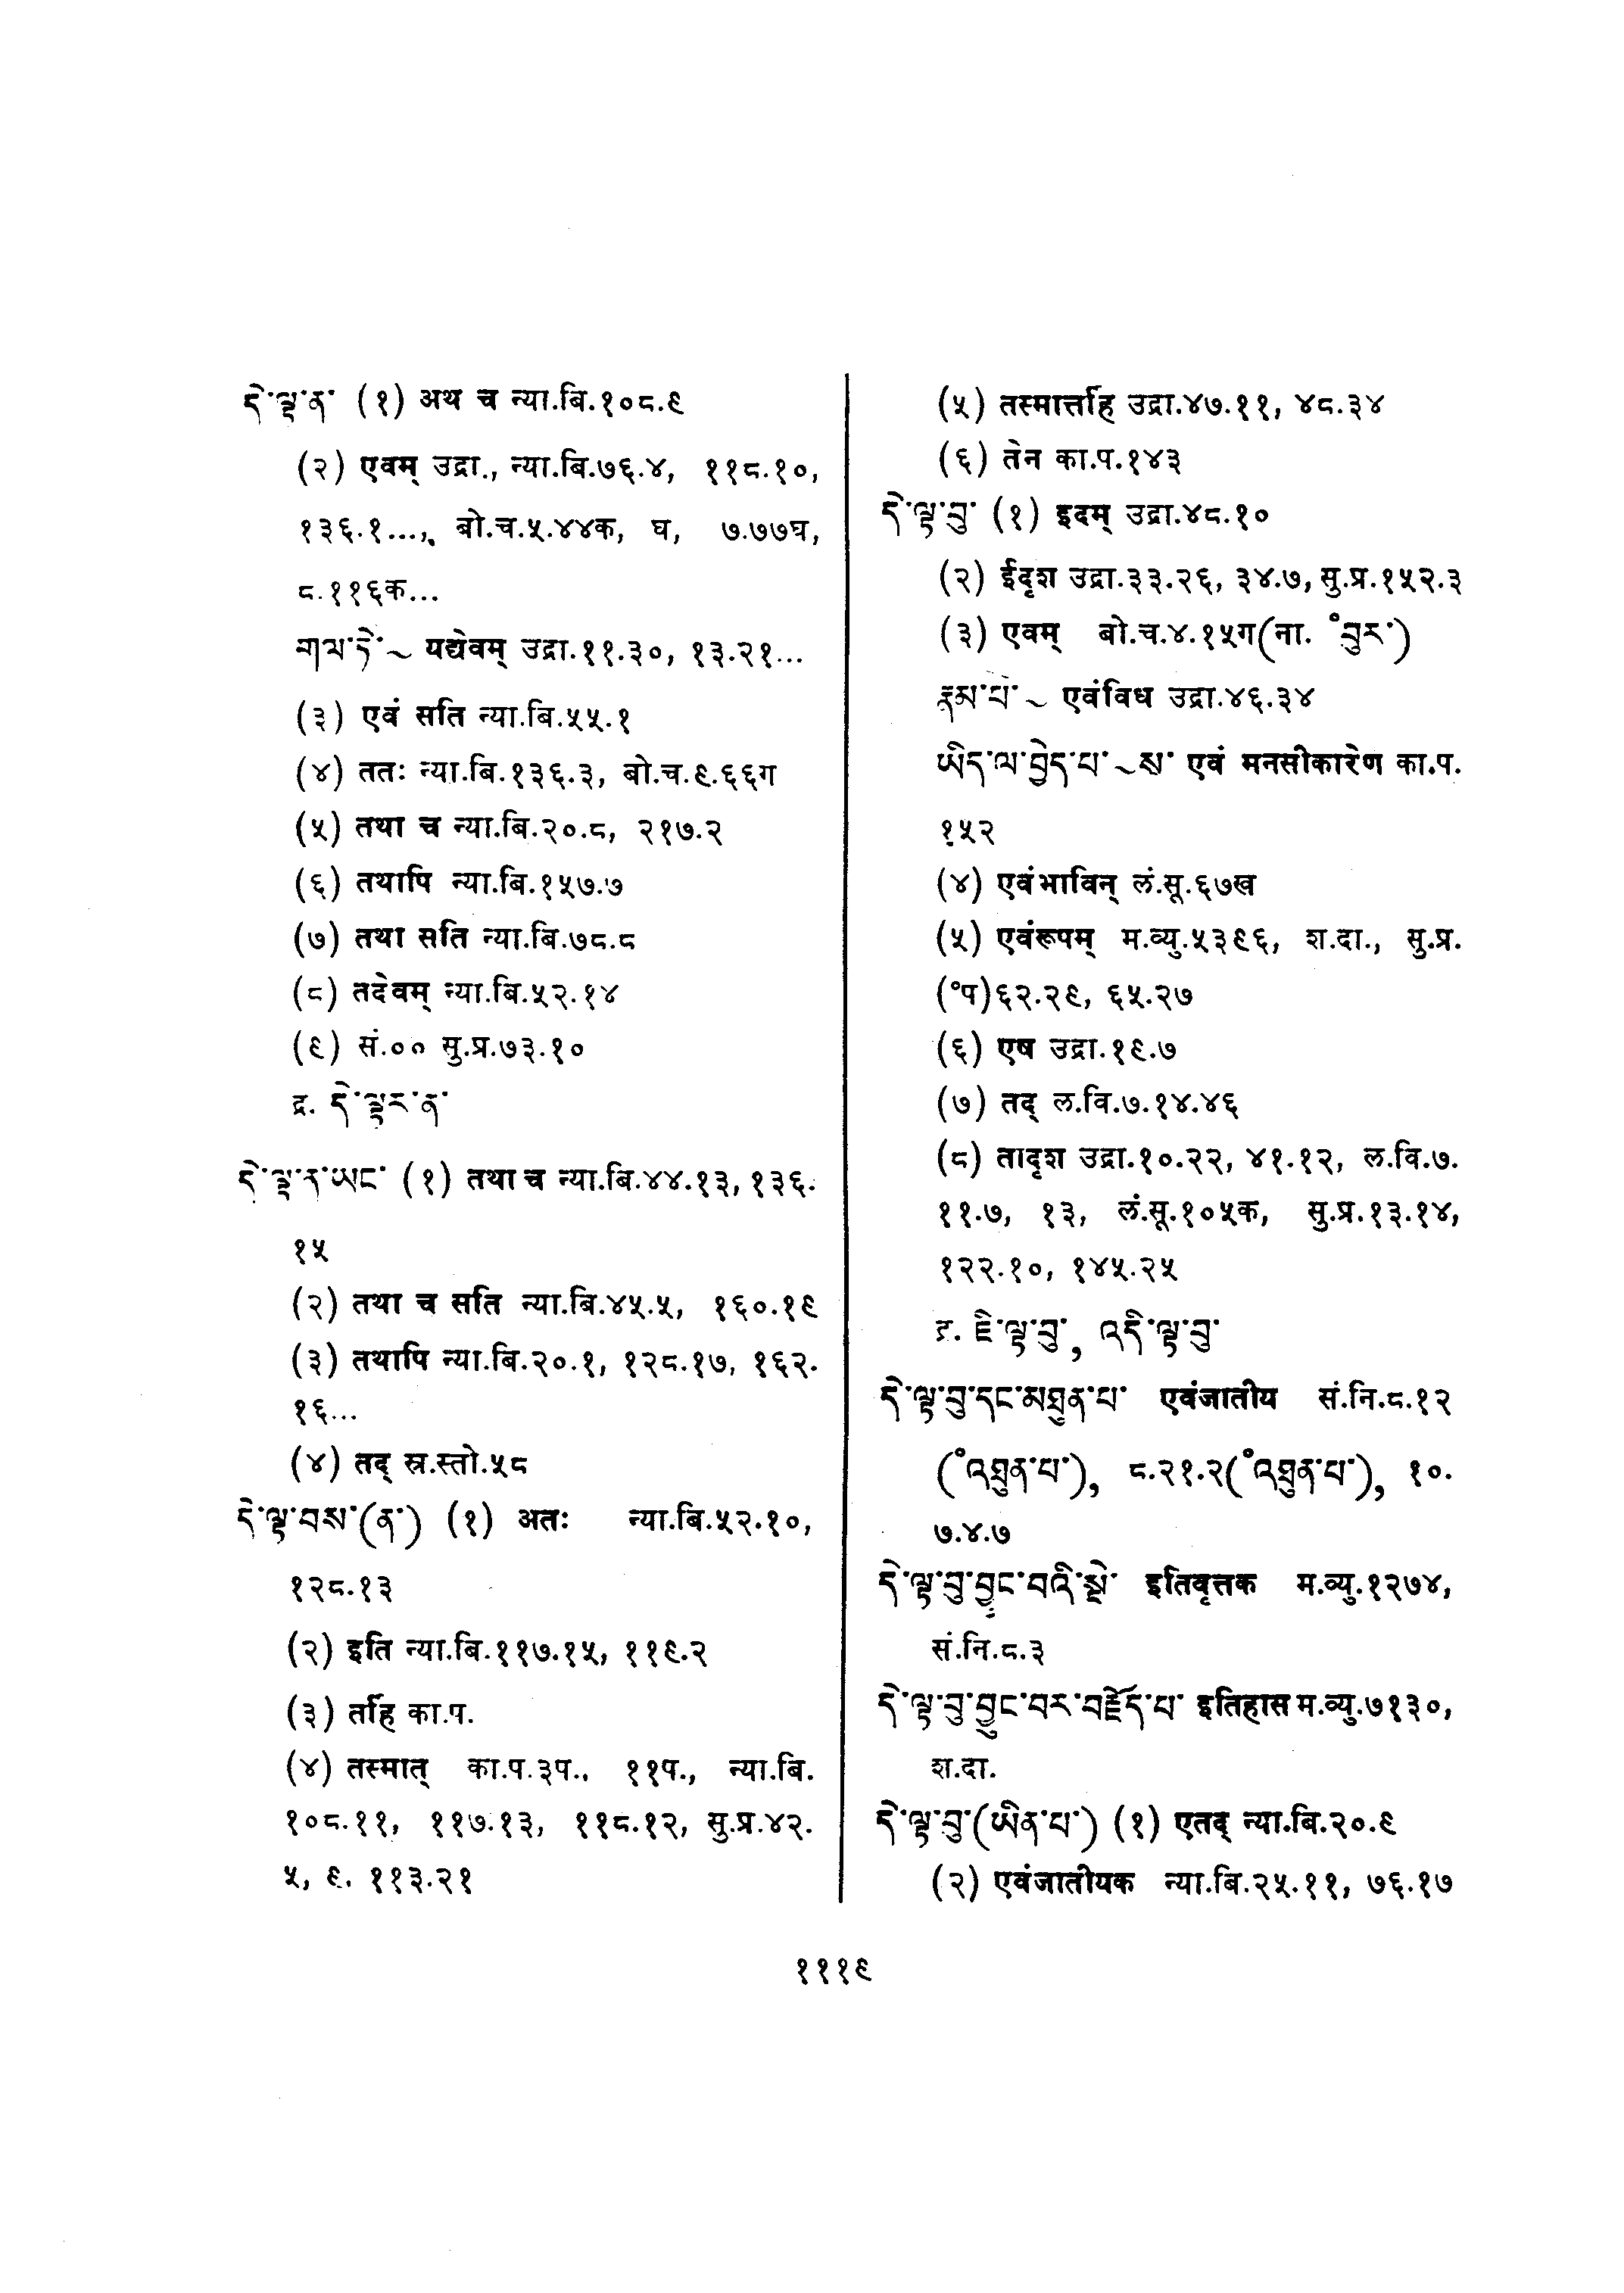 དེ་ལྟ་ན་ (१) अथ च न्या.बि.१०८.९
(२) एवम् उद्रा., न्या.बि.७६.४, ११८.१०,
१३६.१..., बो.च.५.४४क, घ, ७.७७घ,
८.११६क...
གལ་ཏེ་~ यद्येवम् उद्रा.११.३०, १३.२१...
(३) एवं सति न्या.बि.५५.१
(४) ततः न्या.बि.१३६.३, बो.च.९.६६ग
(५) तथा च न्या.बि.२०.८, २१७.२
(६) तथापि न्या.बि.१५७.७
(७) तथा सति न्या.बि.७८.८
(८) तदेवम् न्या.बि.५२.१४
(९) सं.०० सु.प्र.७३.१०
द्र. དེ་ལྟར་ན་
དེ་ལྟ་ན་ཡང་ (१) तथा च न्या.बि.४४.१३, १३६.
१५
(२) तथा च सति न्या.बि.४५.५, १६०.१९
(३) तथापि न्या.बि.२०.१, १२८.१७, १६२.
१६...
(४) तद् स्र.स्तो.५८
དེ་ལྟ་བས་(ན་) (१) अतः न्या.बि.५२.१०,
१२८.१३
(२) इति न्या.बि.११७.१५, ११९.२
(३) तर्हि का.प.
(४) तस्मात् का.प.३प., ११प., न्या.बि.
१०८.११, ११७.१३, ११८.१२, सु.प्र.४२.
५, ९, ११३.२१
(५) तस्मार्त्तहि उद्रा.४७.११, ४८.३४
(६) तेन का.प.१४३
དེ་ལྟ་བུ་ (१) इदम् उद्रा.४८.१०
(२) ईदृश उद्रा.३३.२६, ३४.७, सु.प्र.१५२.३
(३) एवम् बो.च.४.१५ग(ना. °བུར་)
རྣམ་པ་~ एवंविध उद्रा.४६.३४
ཡིད་ལ་བྱེད་པ་~ས་ एवं मनसीकारेण का.प.
१५२
(४) एवंभाविन् लं.सू.६७ख
(५) एवंरूपम् म.व्यु.५३९६, श.दा., सु.प्र.
(°प)६२.२९, ६५.२७
(६) एष उद्रा.१९.७
(७) तद् ल.वि.७.१४.४६
(८) तादृश उद्रा.१०.२२, ४१.१२, ल.वि.७.
११.७, १३, लं.सू.१०५क, सु.प्र.१३.१४,
१२२.१०, १४५.२५
द्र. ཇི་ལྟ་བུ་, འདི་ལྟ་བུ་
དེ་ལྟ་བུ་དང་མཐུན་པ་ एवंजातीय सं.नि.८.१२
(°འཐུན་པ་), ८.२१.२(°འཐུན་པ་), १०.
७.४.७
དེ་ལྟ་བུ་བྱུང་བའི་སྡེ་ इतिवृत्तक म.व्यु.१२७४,
सं.नि.८.३
དེ་ལྟ་བུ་བྱུང་བར་བརྗོད་པ་ इतिहास म.व्यु.७१३०,
श.दा.
དེ་ལྟ་བུ་(ཡིན་པ་) (१) एतद् न्या.बि.२०.९
(२) एवंजातीयक न्या.बि.२५.११, ७६.१७
१११९